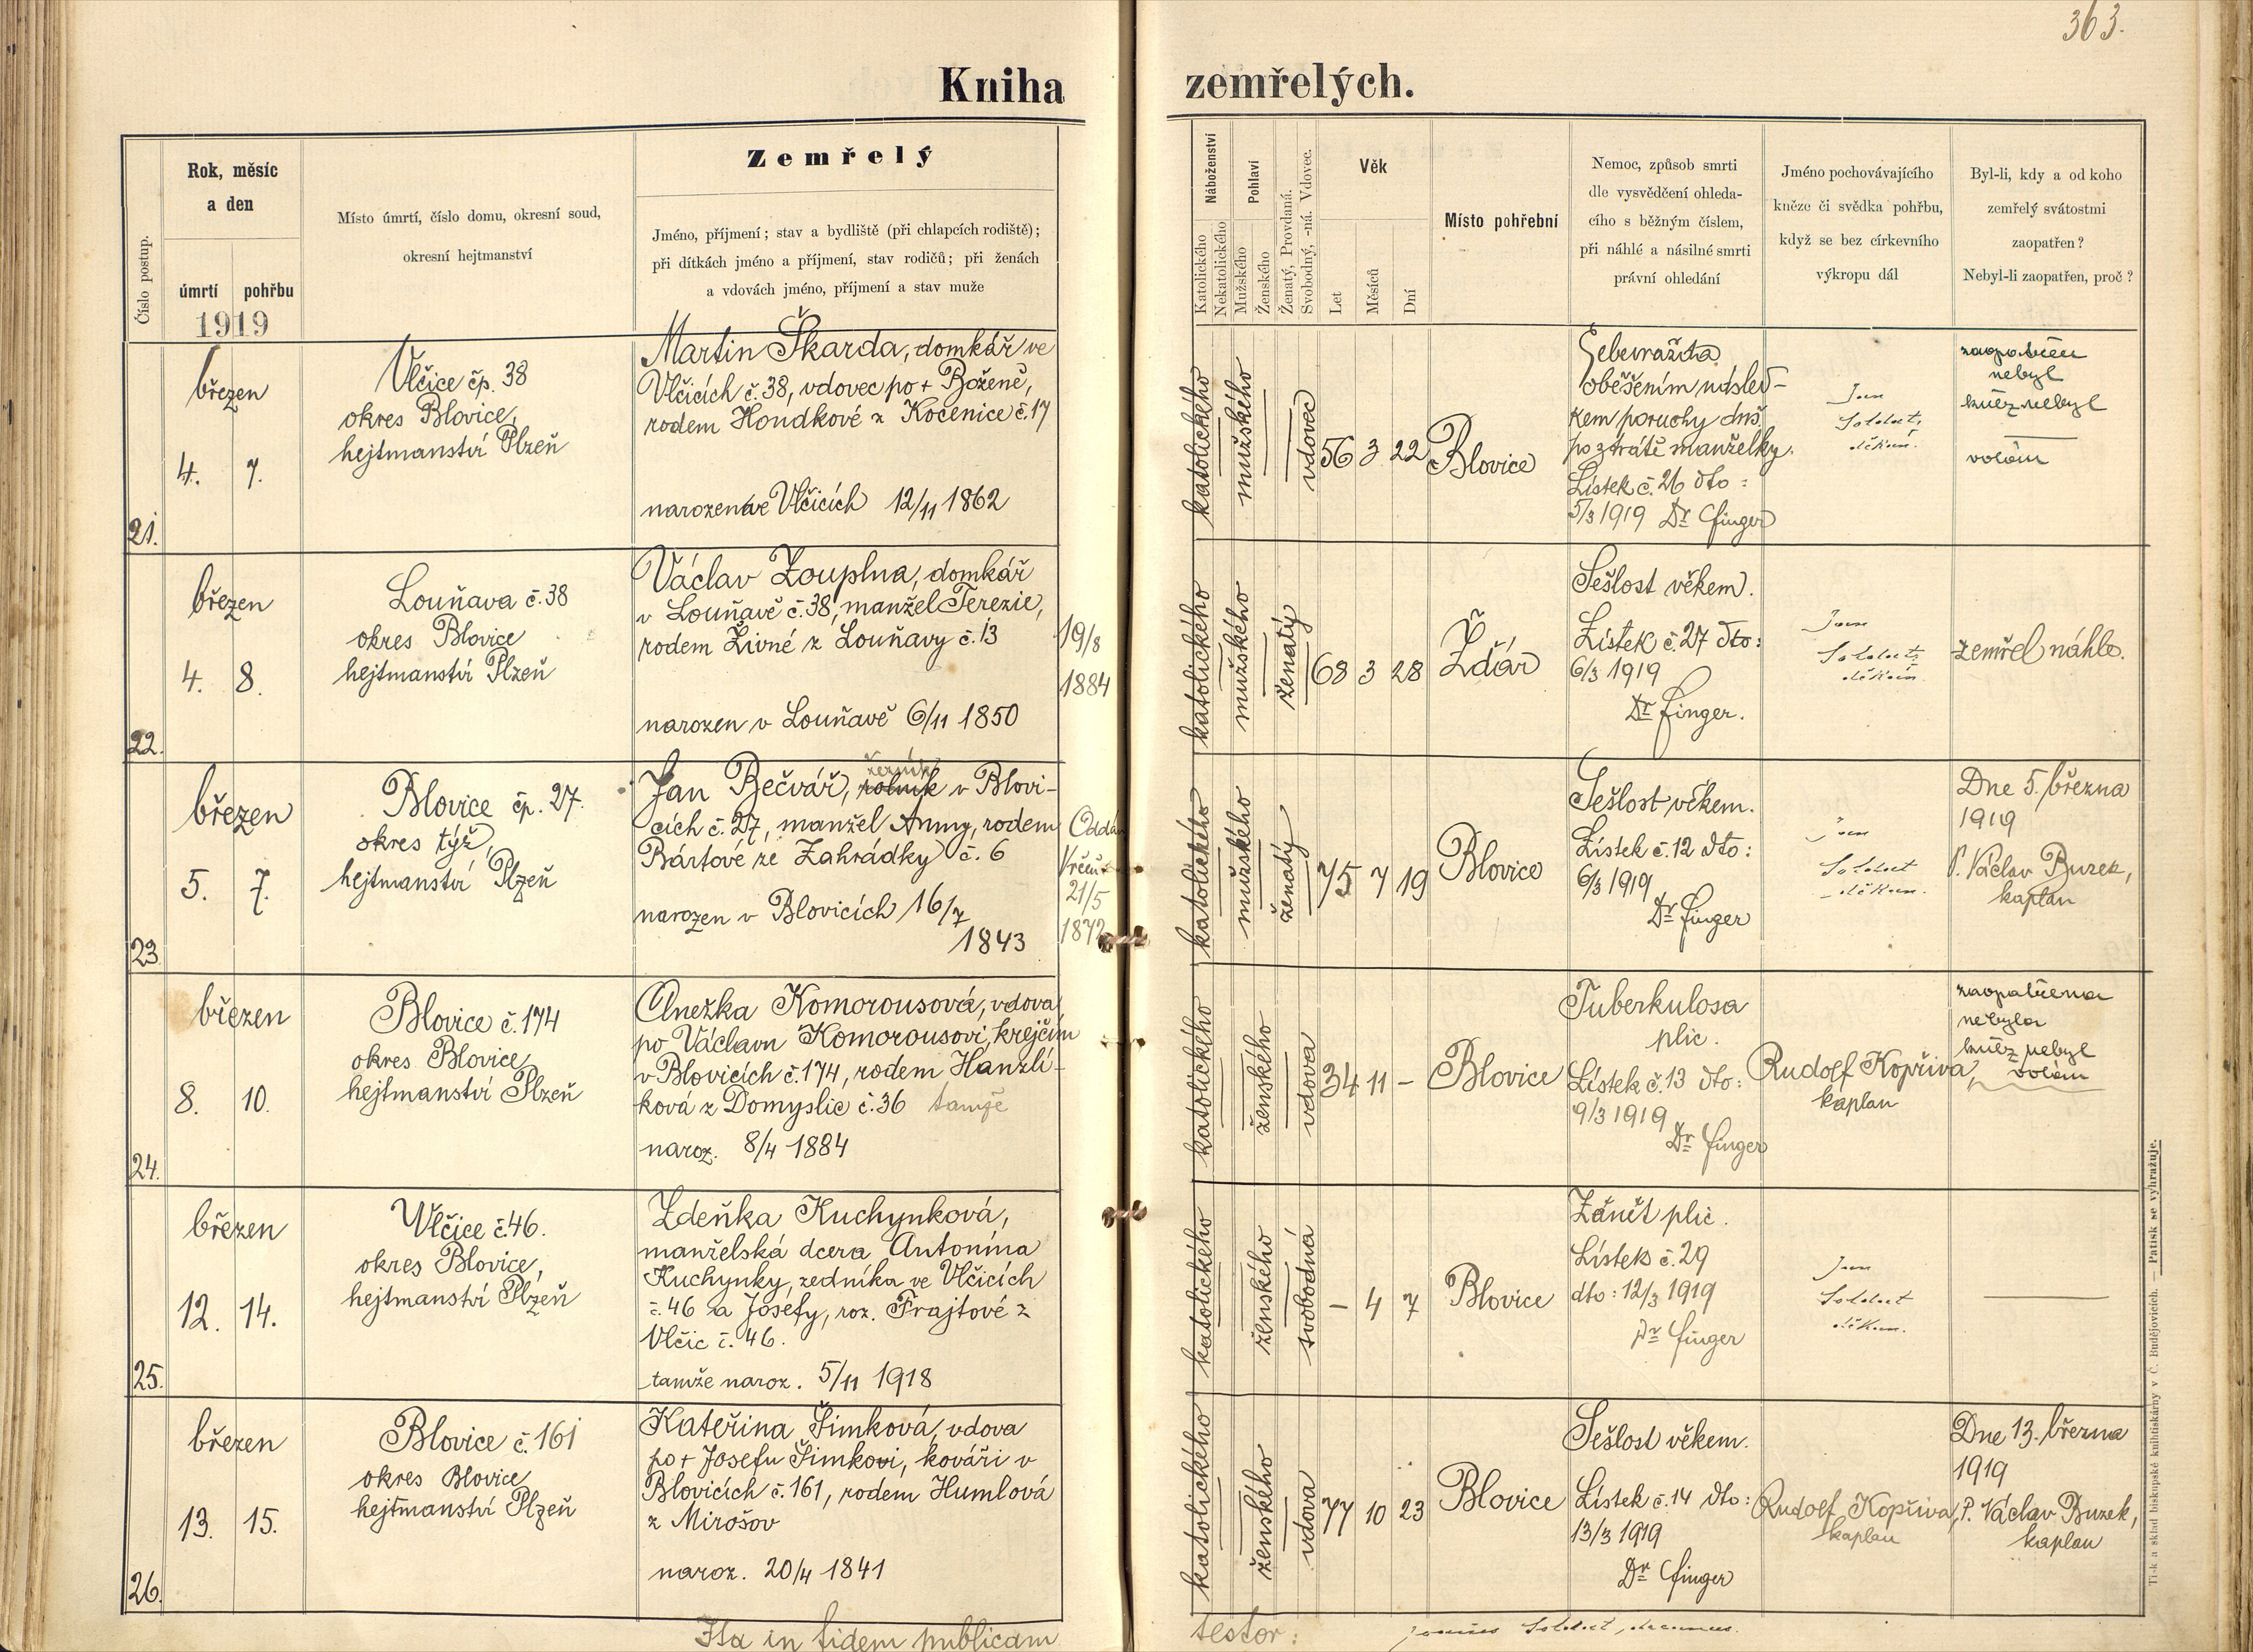 363.
Kniha zemřelých.
Číslo postup.
Rok, měsíc
a den
úmrtí
pohřbu
1919
Místo úmrtí, číslo domu, okresní soud,
okresní hejtmanství
Zemřelý
Jméno, příjmení; stav a bydliště (při chlapcích rodiště);
při dítkách jméno a příjmení, stav rodičů; při ženách
a vdovách jméno, příjmení a stav muže
Náboženství
Katolického
Nekatolického
Pohlaví
Mužského
Ženského
Ženatý, Provdaná.
Svobodný, -ná. Vdovec.
Věk
Let
Měsíců
Dní
Místo pohřební
Nemoc, způsob smrti
dle vysvědčení ohleda-
cího s běžným číslem,
při náhlé a násilné smrti
právní ohledání
Jméno pochovávajícího
kněze či svědka pohřbu,
když se bez církevního
výkropu dál
Byl-li, kdy a od koho
zemřelý svátostmi
zaopatřen?
Nebyl-li zaopatřen, proč?
21.
březen
4. 7.
Vlčice čp. 38
okres Blovice,
hejtmanství Plzeň
Martin Škarda, domkář ve
Vlčicích č. 38, vdovec po + Boženě,
rodem Hondkové z Kocenice č. 17
narozen ve Vlčicích 12/11 1862
katolického
mužského
vdovec
56 3 22
Blovice
Sebevražda
oběšením násled-
kem poruchy duš.
po ztrátě manželky.
Lístek č. 26 dto:
5/3 1919 Dr Finger
Jan
Soldát,
děkan.
zaopatřen
nebyl
kněz nebyl
volán
22.
březen
4. 8.
Louňava č. 38
okres Blovice
hejtmanství Plzeň
Václav Zouplna, domkář
v Louňavě č. 38, manžel Terezie,
rodem Živné z Louňavy č. 13
narozen v Louňavě 6/11 1850
19/8
1884
katolického
mužského
ženatý
68 3 28
Ždár
Sešlost věkem.
Lístek č. 27 dto:
6/3 1919
Dr Finger.
Jan
Soldát,
děkan
zemřel náhle.
23.
březen
5. 7.
Blovice čp. 27.
okres týž,
hejtmanství Plzeň
řezník
Jan Bečvář, rolník v Blovi-
cích č. 27, manžel Anny, rodem
Bártové ze Zahrádky č. 6
narozen v Blovicích 16/7
1843
Oddán
Vrčeň
21/5
1872
katolického
mužského
ženatý
75 7 19
Blovice
Sešlost věkem.
Lístek č. 12 dto:
6/3 1919
Dr Finger
Jan
Soldát
děkan.
Dne 5. března
1919
P. Václav Buzek,
kaplan
24.
březen
8. 10.
Blovice č. 174
okres Blovice
hejtmanství Plzeň
Anežka Komorousová, vdova
po Václavu Komorousovi, krejčím
v Blovicích č. 174, rodem Hanzlí-
ková z Domyslic č. 36 tamže
naroz. 8/4 1884
katolického
ženského
vdova
34 11 –
Blovice
Tuberkulosa
plic.
Lístek č. 13 dto:
9/3 1919
Dr Finger
Rudolf Kopřiva,
kaplan
zaopatřena
nebyla
kněz nebyl
volán
25.
březen
12. 14.
Vlčice č. 46.
okres Blovice,
hejtmanství Plzeň
Zdeňka Kuchynková,
manželská dcera Antonína
Kuchynky, zedníka ve Vlčicích
č. 46 a Josefy, roz. Frajtové z
Vlčic č. 46.
tamže naroz. 5/11 1918
katolického
ženského
svobodná
– 4 7
Blovice
Zánět plic.
Lístek č. 29
dto: 12/3 1919
Dr Finger
Jan
Soldát
děkan.
26.
březen
13. 15.
Blovice č. 161
okres Blovice
hejtmanství Plzeň
Kateřina Šimková, vdova
po + Josefu Šimkovi, kováři v
Blovicích č. 161, rodem Humlová
z Mirošov
naroz. 20/4 1841
katolického
ženského
vdova
77 10 23
Blovice
Sešlost věkem.
Lístek č. 14 dto:
13/3 1919
Dr Finger
Rudolf Kopřiva,
kaplan
Dne 13. března
1919
P. Václav Buzek,
kaplan
Ita in fidem publicam
testor: Joannes Soldát, decanus.
Tisk a sklad biskupské knihtiskárny v Č. Budějovicích. — Patisk se vyhražuje.